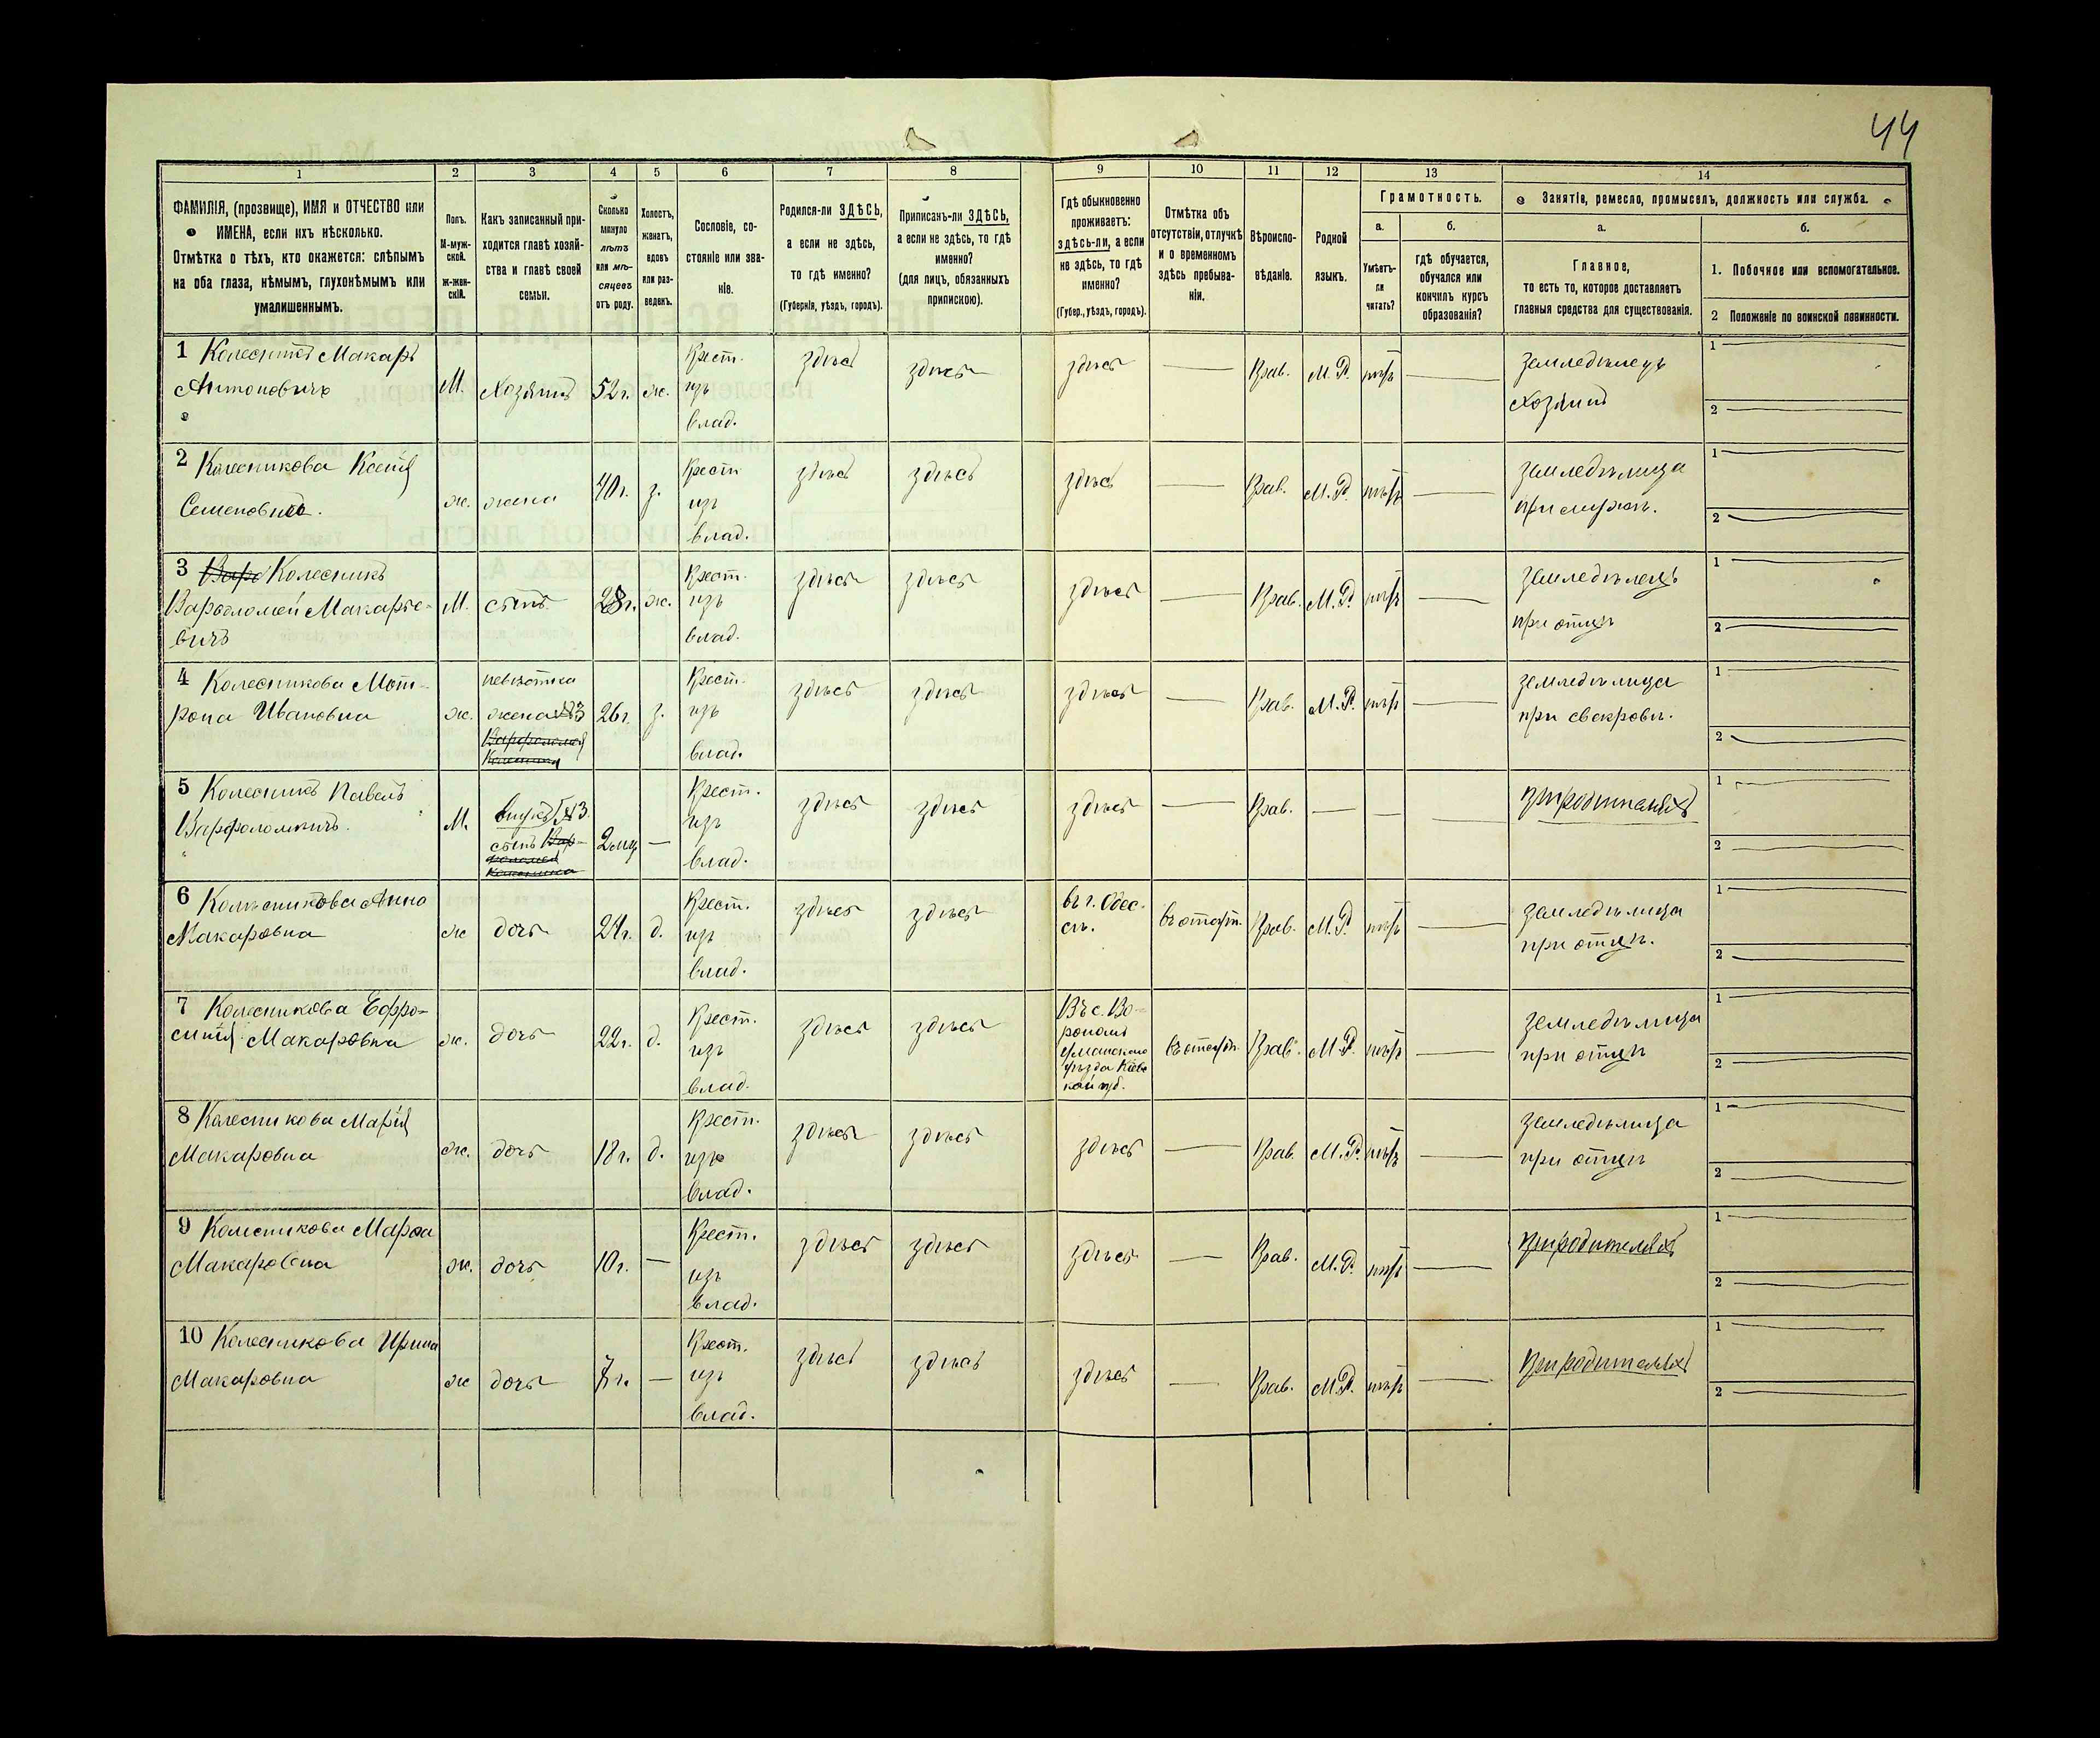 44
1 2 3 4 5 6 7 8 9 10 11 12 13 14
ФАМИЛІЯ, (прозвище), ИМЯ и ОТЧЕСТВО или
ИМЕНА, если ихъ нѣсколько.
Отмѣтка о тѣхъ, кто окажется: слѣпымъ
на оба глаза, нѣмымъ, глухонѣмымъ или
умалишеннымъ.
Полъ.
М-муж-
ской.
ж-жен-
скій.
Какъ записанный при-
ходится главѣ хозяй-
ства и главѣ своей
семьи.
Сколько
минуло
лѣтъ
или мѣ-
сяцевъ
отъ роду.
Холостъ,
женатъ,
вдовъ
или раз-
веденъ.
Сословіе, со-
стояніе или зва-
ніе.
Родился-ли ЗДѢСЬ,
а если не здѣсь,
то гдѣ именно?
(Губернія, уѣздъ, городъ).
Приписанъ-ли ЗДѢСЬ,
а если не здѣсь, то гдѣ
именно?
(для лицъ, обязанныхъ
припискою).
Гдѣ обыкновенно
проживаетъ:
здѣсь-ли, а если
не здѣсь, то гдѣ
именно?
(Губер., уѣздъ, городъ).
Отмѣтка объ
отсутствіи, отлучкѣ
и о временномъ
здѣсь пребыва-
ніи.
Вѣроиспо-
вѣданіе.
Родной
языкъ.
Грамотность.
а.
Умѣетъ-
ли
читать?
б.
гдѣ обучается,
обучался или
кончилъ курсъ
образованія?
Занятіе, ремесло, промыселъ, должность или служба.
а.
Главное,
то есть то, которое доставляетъ
главныя средства для существованія.
б.
1. Побочное или вспомогательное.
2 Положеніе по воинской повинности.
1 Колесникъ Макаръ
Антоновичъ
М. Хозяинъ 52 г. ж.
Крест.
изъ
влад.
здѣсь здѣсь здѣсь — Прав. М. Р. нѣтъ —
земледѣлецъ
хозяинъ
1 —
2 —
2 Колесникова Ксенія
Семеновна.
ж. жена 40 г. з.
Крест
изъ
влад.
здѣсь здѣсь здѣсь — Прав. М. Р. нѣтъ —
земледѣлица
при мужѣ.
1 —
2 —
3 Колесникъ
Варфоломей Макарье-
вичъ
М. сынъ 28 г. ж.
Крест.
изъ
влад.
здѣсь здѣсь здѣсь — Прав. М. Р. нѣтъ —
земледѣлецъ
при отцѣ
1 —
2 —
4 Колесникова Мот-
рона Ивановна
ж.
невѣстка
жена №3
Варфоломея
Колесника
26 г. з.
Крест.
изъ
влад.
здѣсь здѣсь здѣсь — Прав. М. Р. нѣтъ —
земледѣлица
при свекрови.
1 —
2 —
5 Колесникъ Павелъ
Варфоломеичъ.
М.
внукъ №3.
сынъ Вар-
фоломея
Колесника
2 мц. —
Крест.
изъ
влад.
здѣсь здѣсь здѣсь — Прав. — — —
При родителяхъ
1 —
2 —
6 Колесникова Анна
Макаровна
ж дочь 24 г. д.
Крест.
изъ
влад.
здѣсь здѣсь
въ г. Одес-
сѣ.
Прав. М. Р. нѣтъ —
земледѣлица
при отцѣ.
1 —
2 —
7 Колесникова Ефро-
синія Макаровна
ж. дочь 22 г. д.
Крест.
изъ
влад.
здѣсь здѣсь
Въ с. Во-
роном
Уманскаго
уѣзда Кіевс
кой губ.
Прав. М. Р. нѣтъ —
земледѣлица
при отцѣ
1 —
2 —
8 Колесникова Марія
Макаровна
ж. дочь 18 г. д.
Крест.
изъ
влад.
здѣсь здѣсь здѣсь — Прав. М. Р. нѣтъ —
земледѣлица
при отцѣ
1 —
2 —
9 Колесникова Марфа
Макаровна
ж. дочь 10 г. —
Крест.
изъ
влад.
здѣсь здѣсь здѣсь — Прав. М. Р. нѣтъ —
При родителяхъ
1 —
2 —
10 Колесникова Ирина
Макаровна
ж дочь 7 г. —
Крест.
изъ
влад.
здѣсь здѣсь здѣсь — Прав. М. Р. нѣтъ —
При родителяхъ
1 —
2 —